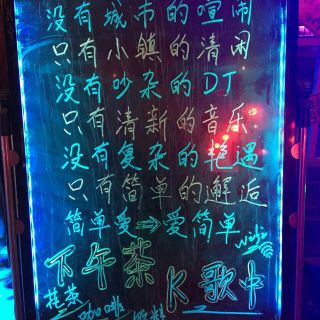 没有城市的喧闹
只有小镇的清闲
没有吵杂的DT
只有清新的音乐
没有复杂的艳遇
只有简单的邂逅
简单爱⇒爱简单
wifi
下午茶 K歌中
抹茶
咖啡 饮料